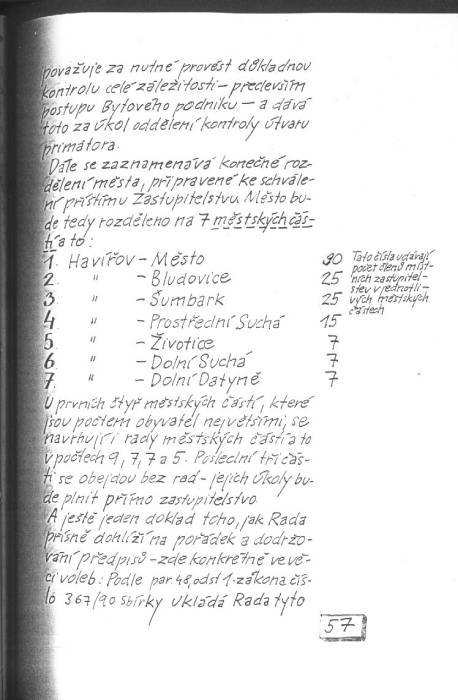 považuje za nutné provést důkladnou
kontrolu celé záležitosti – především
postupu Bytového podniku – a dává
toto za úkol oddělení kontroly útvaru
primátora.
Dále se zaznamenává konečné roz-
dělení města, připravené ke schvále-
ní příštímu Zastupitelstvu. Město bu-
de tedy rozděleno na 7 městských čás-
tí a to:
1. Havířov – Město 30
2. " – Bludovice 25
3. " – Šumbark 25
4. " – Prostřední Suchá 15
5. " – Životice 7
6. " – Dolní Suchá 7
7. " – Dolní Datyně 7
Tato čísla udávají
počet členů míst-
ních zastupitel-
stev v jednotli-
vých městských
částech
U prvních čtyř městských částí, které
jsou počtem obyvatel největšími, se
navrhují i rady městských částí a to
v počtech 9, 7, 7 a 5. Poslední tři čás-
ti se obejdou bez rad – jejich úkoly bu-
de plnit přímo zastupitelstvo.
A ještě jeden doklad toho, jak Rada
přísně dohlíží na pořádek a dodržo-
vání předpisů – zde konkrétně ve vě-
ci voleb: Podle par. 48, odst 1. zákona čís-
lo 367/90 sbírky ukládá Rada tyto
57